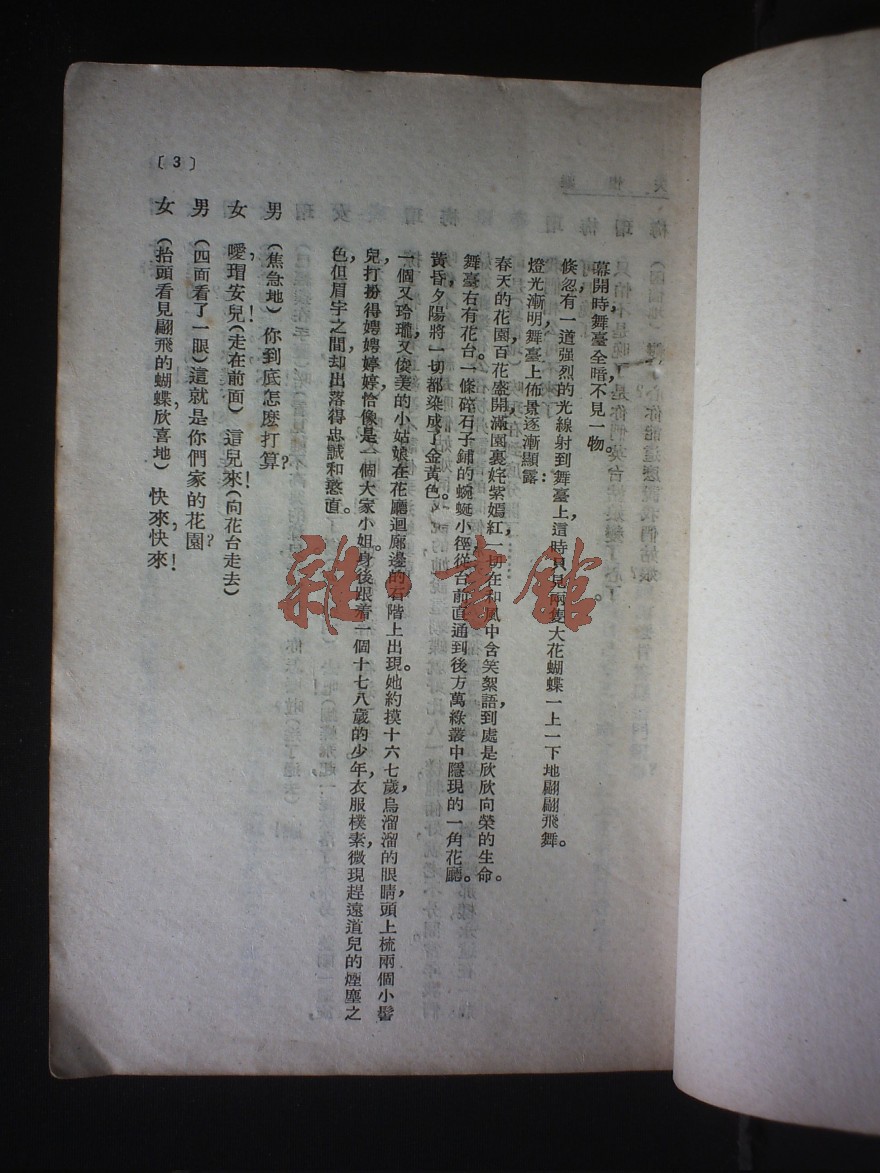 幕開時，舞臺全暗，不見一物。
倏忽有一道强烈的光線射到舞臺上，這時只見兩隻大花蝴蝶一上一下地翩翩飛舞。
燈光漸明，舞臺上佈景逐漸顯露：
春天的花園，百花盛開，滿園裏姹紫嫣紅，一切在和風中含笑絮語，到處是欣欣向榮的生命。
舞臺右有花台。一條碎石子鋪的蜿蜒小徑從台前直通到後方萬綠叢中隱現的一角花廳。
黃昏，夕陽將一切都染成了金黃色。
一個又玲瓏又俊美的小姑娘在花廳迴廊邊的石階上出現。她約摸十六七歲，烏溜溜的眼睛，頭上梳兩個小髻
兒，打扮得娉娉婷婷，恰像是一個大家小姐。身後跟着一個十七八歲的少年，衣服樸素，微現趕遠道兒的煙塵之
色，但眉宇之間却出落得忠誠和憨直。
男　（焦急地）你到底怎麽打算？
女　噯，瑁安兒！（走在前面）這兒來！（向花台走去）
男　（四面看了一眼）這就是你們家的花園？
女　（抬頭看見翩飛的蝴蝶，欣喜地）快來，快來！
〔3〕
雜·書館